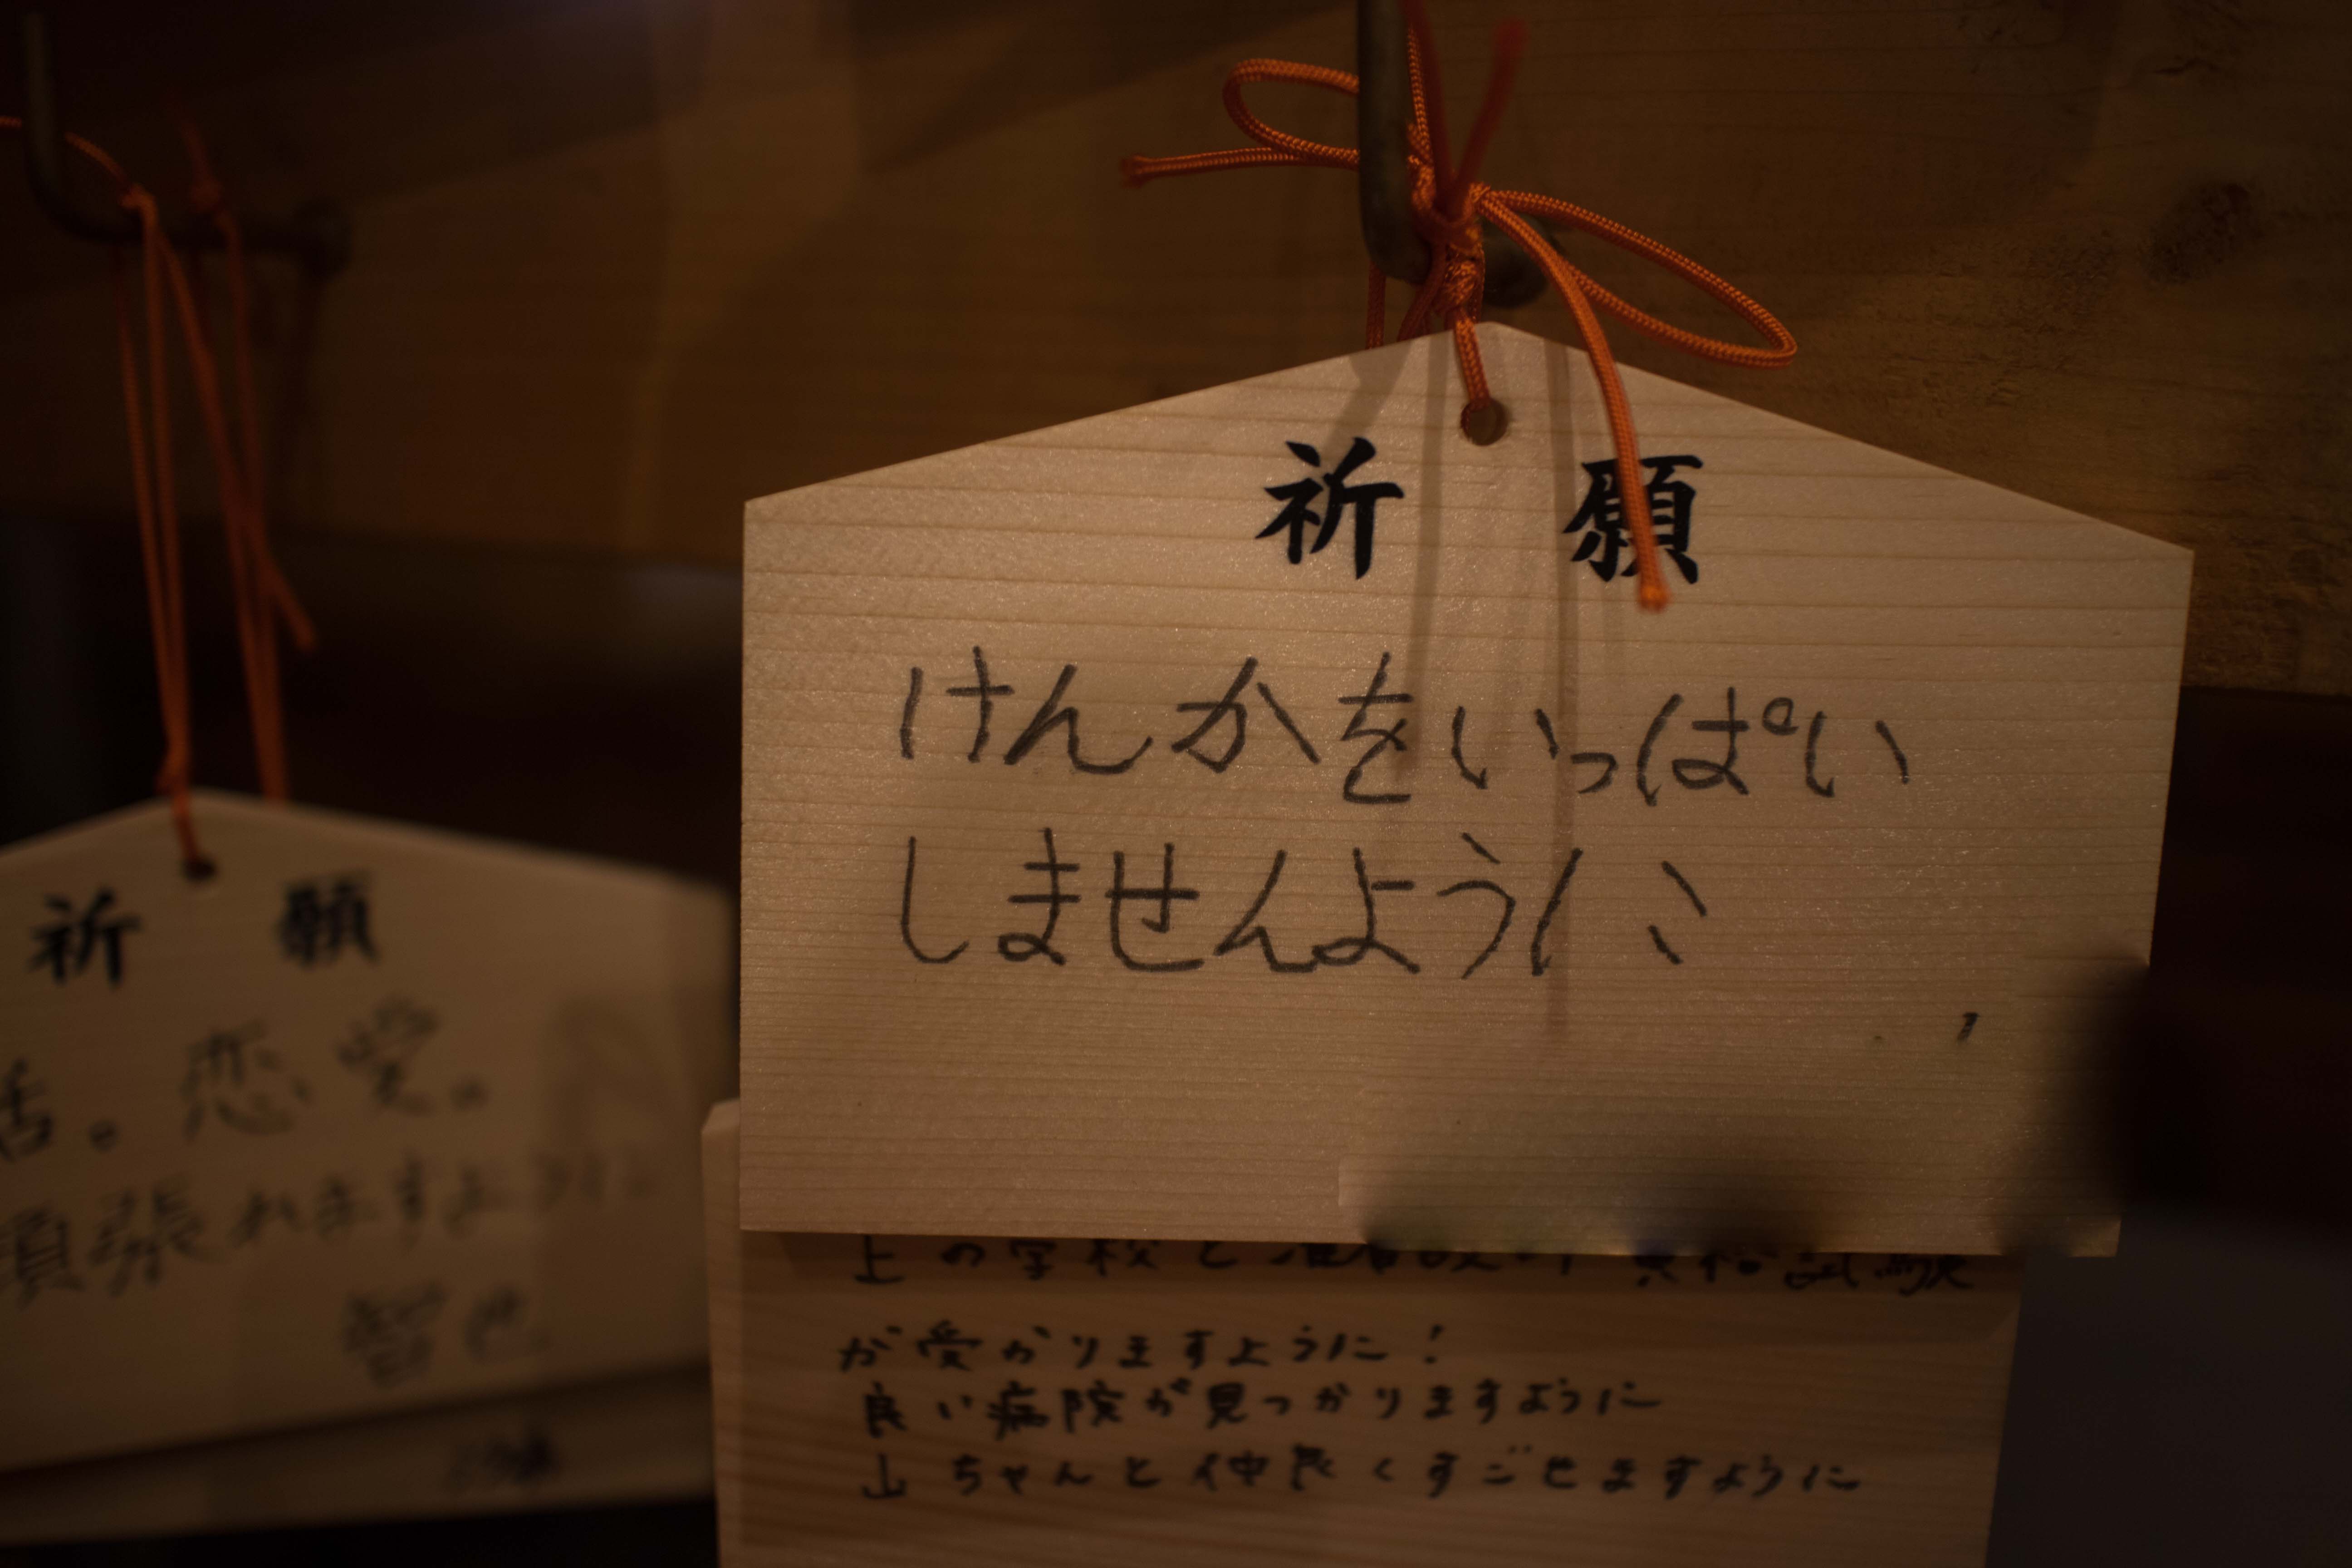 祈 願
けんかをいっぱい
しませんように
が受かりますように！
良い病院が見つかりますように
山ちゃんと仲良くすごせますように
祈 願
活。恋愛。
頑張れますように
智也